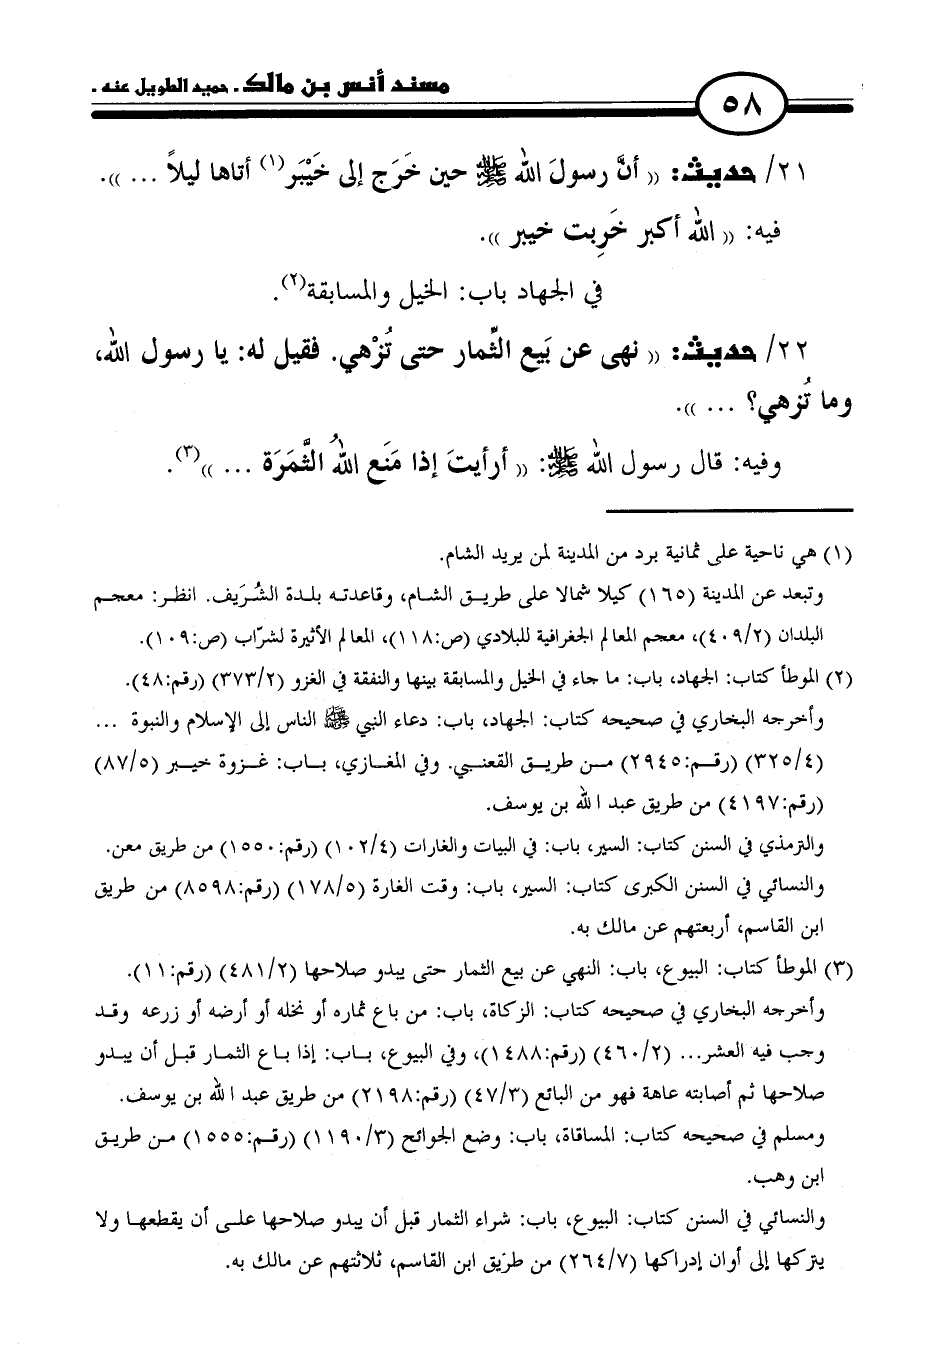 ٥٨ مسند أنس بن مالك. حميد الطويل عنه.
٢١/ حديث: (( أنَّ رسولَ الله ﷺ حين خَرَج إلى خَيْبَر(١) أتاها ليلاً ... )).
فيه: (( الله أكبر خَرِبت خيبر )).
في الجهاد باب: الخيل والمسابقة(٢).
٢٢/ حديث: (( نهى عن بَيع الثِّمار حتى تُزْهي. فقيل له: يا رسول الله،
وما تُزهي؟ ... )).
وفيه: قال رسول الله ﷺ: (( أرأيتَ إذا مَنَع اللهُ الثَّمَرَة ... ))(٣).
(١) هي ناحية على ثمانية برد من المدينة لمن يريد الشام.
وتبعد عن المدينة (١٦٥) كيلا شمالا على طريق الشام، وقاعدته بلدة الشُرَيف. انظر: معجم
البلدان (٤٠٩/٢)، معجم المعالم الجغرافية للبلادي (ص:١١٨)، المعالم الأثيرة لشرّاب (ص:١٠٩).
(٢) الموطأ كتاب: الجهاد، باب: ما جاء في الخيل والمسابقة بينها والنفقة في الغزو (٣٧٣/٢) (رقم:٤٨).
وأخرجه البخاري في صحيحه كتاب: الجهاد، باب: دعاء النبي ﷺ الناس إلى الإسلام والنبوة ...
(٣٢٥/٤) (رقم:٢٩٤٥) من طريق القعنبي. وفي المغازي، باب: غزوة خيبر (٨٧/٥)
(رقم:٤١٩٧) من طريق عبد الله بن يوسف.
والترمذي في السنن كتاب: السير، باب: في البيات والغارات (١٠٢/٤) (رقم:١٥٥٠) من طريق معن.
والنسائي في السنن الكبرى كتاب: السير، باب: وقت الغارة (١٧٨/٥) (رقم:٨٥٩٨) من طريق
ابن القاسم، أربعتهم عن مالك به.
(٣) الموطأ كتاب: البيوع، باب: النهي عن بيع الثمار حتى يبدو صلاحها (٤٨١/٢) (رقم:١١).
وأخرجه البخاري في صحيحه كتاب: الزكاة، باب: من باع ثماره أو نخله أو أرضه أو زرعه وقد
وجب فيه العشر... (٤٦٠/٢) (رقم:١٤٨٨)، وفي البيوع، باب: إذا باع الثمار قبل أن يبدو
صلاحها ثم أصابته عاهة فهو من البائع (٤٧/٣) (رقم:٢١٩٨) من طريق عبد الله بن يوسف.
ومسلم في صحيحه كتاب: المساقاة، باب: وضع الجوائح (١١٩٠/٣) (رقم:١٥٥٥) من طريق
ابن وهب.
والنسائي في السنن كتاب: البيوع، باب: شراء الثمار قبل أن يبدو صلاحها على أن يقطعها ولا
يتركها إلى أوان إدراكها (٢٦٤/٧) من طريق ابن القاسم، ثلاثتهم عن مالك به.